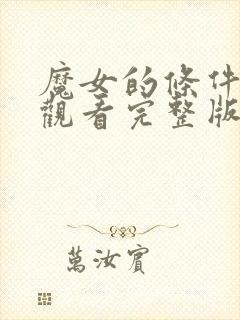 魔女的條件
觀看完整版
萬汝賓